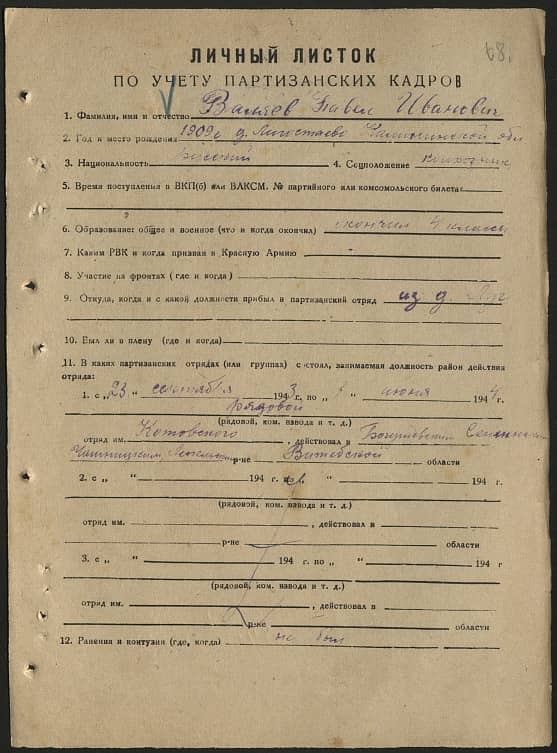 68.
ЛИЧНЫЙ ЛИСТОК
ПО УЧЕТУ ПАРТИЗАНСКИХ КАДРОВ
1. Фамилия, имя и отчество Павел Иванович
2. Год и место рождения 1909 г. д. обл
3. Национальность русский 4. Соцположение колхозник
5. Время поступления в ВКП(б) или ВЛКСМ. № партийного или комсомольского билета
6. Образование: общее и военное (что и когда окончил) окончил 4 классы
7. Каким РВК и когда призван в Красную Армию -
8. Участие на фронтах (где и когда)
9. Откуда, когда и с какой должности прибыл в партизанский отряд из д.
10. Был ли в плену (где и когда)
11. В каких партизанских отрядах (или группах) состоял, занимаемая должность район действия
отряда:
1. с „23 “ сентября 1943 г. по „ “ июня 1944 г.
рядовой
(рядовой, ком. взвода и т. д.)
отряд им. Котовского, действовал в
Чашницком, р-не Витебской области
2. с „ “ 194 г. по „ “ 194 г.
(рядовой, ком. взвода и т. д.)
отряд им. , действовал в
р-не области
3. с „ “ 194 г. по „ “ 194 г
(рядовой, ком. взвода и т. д.)
отряд им. , действовал в
р-не области
12. Ранения и контузии (где, когда) не был